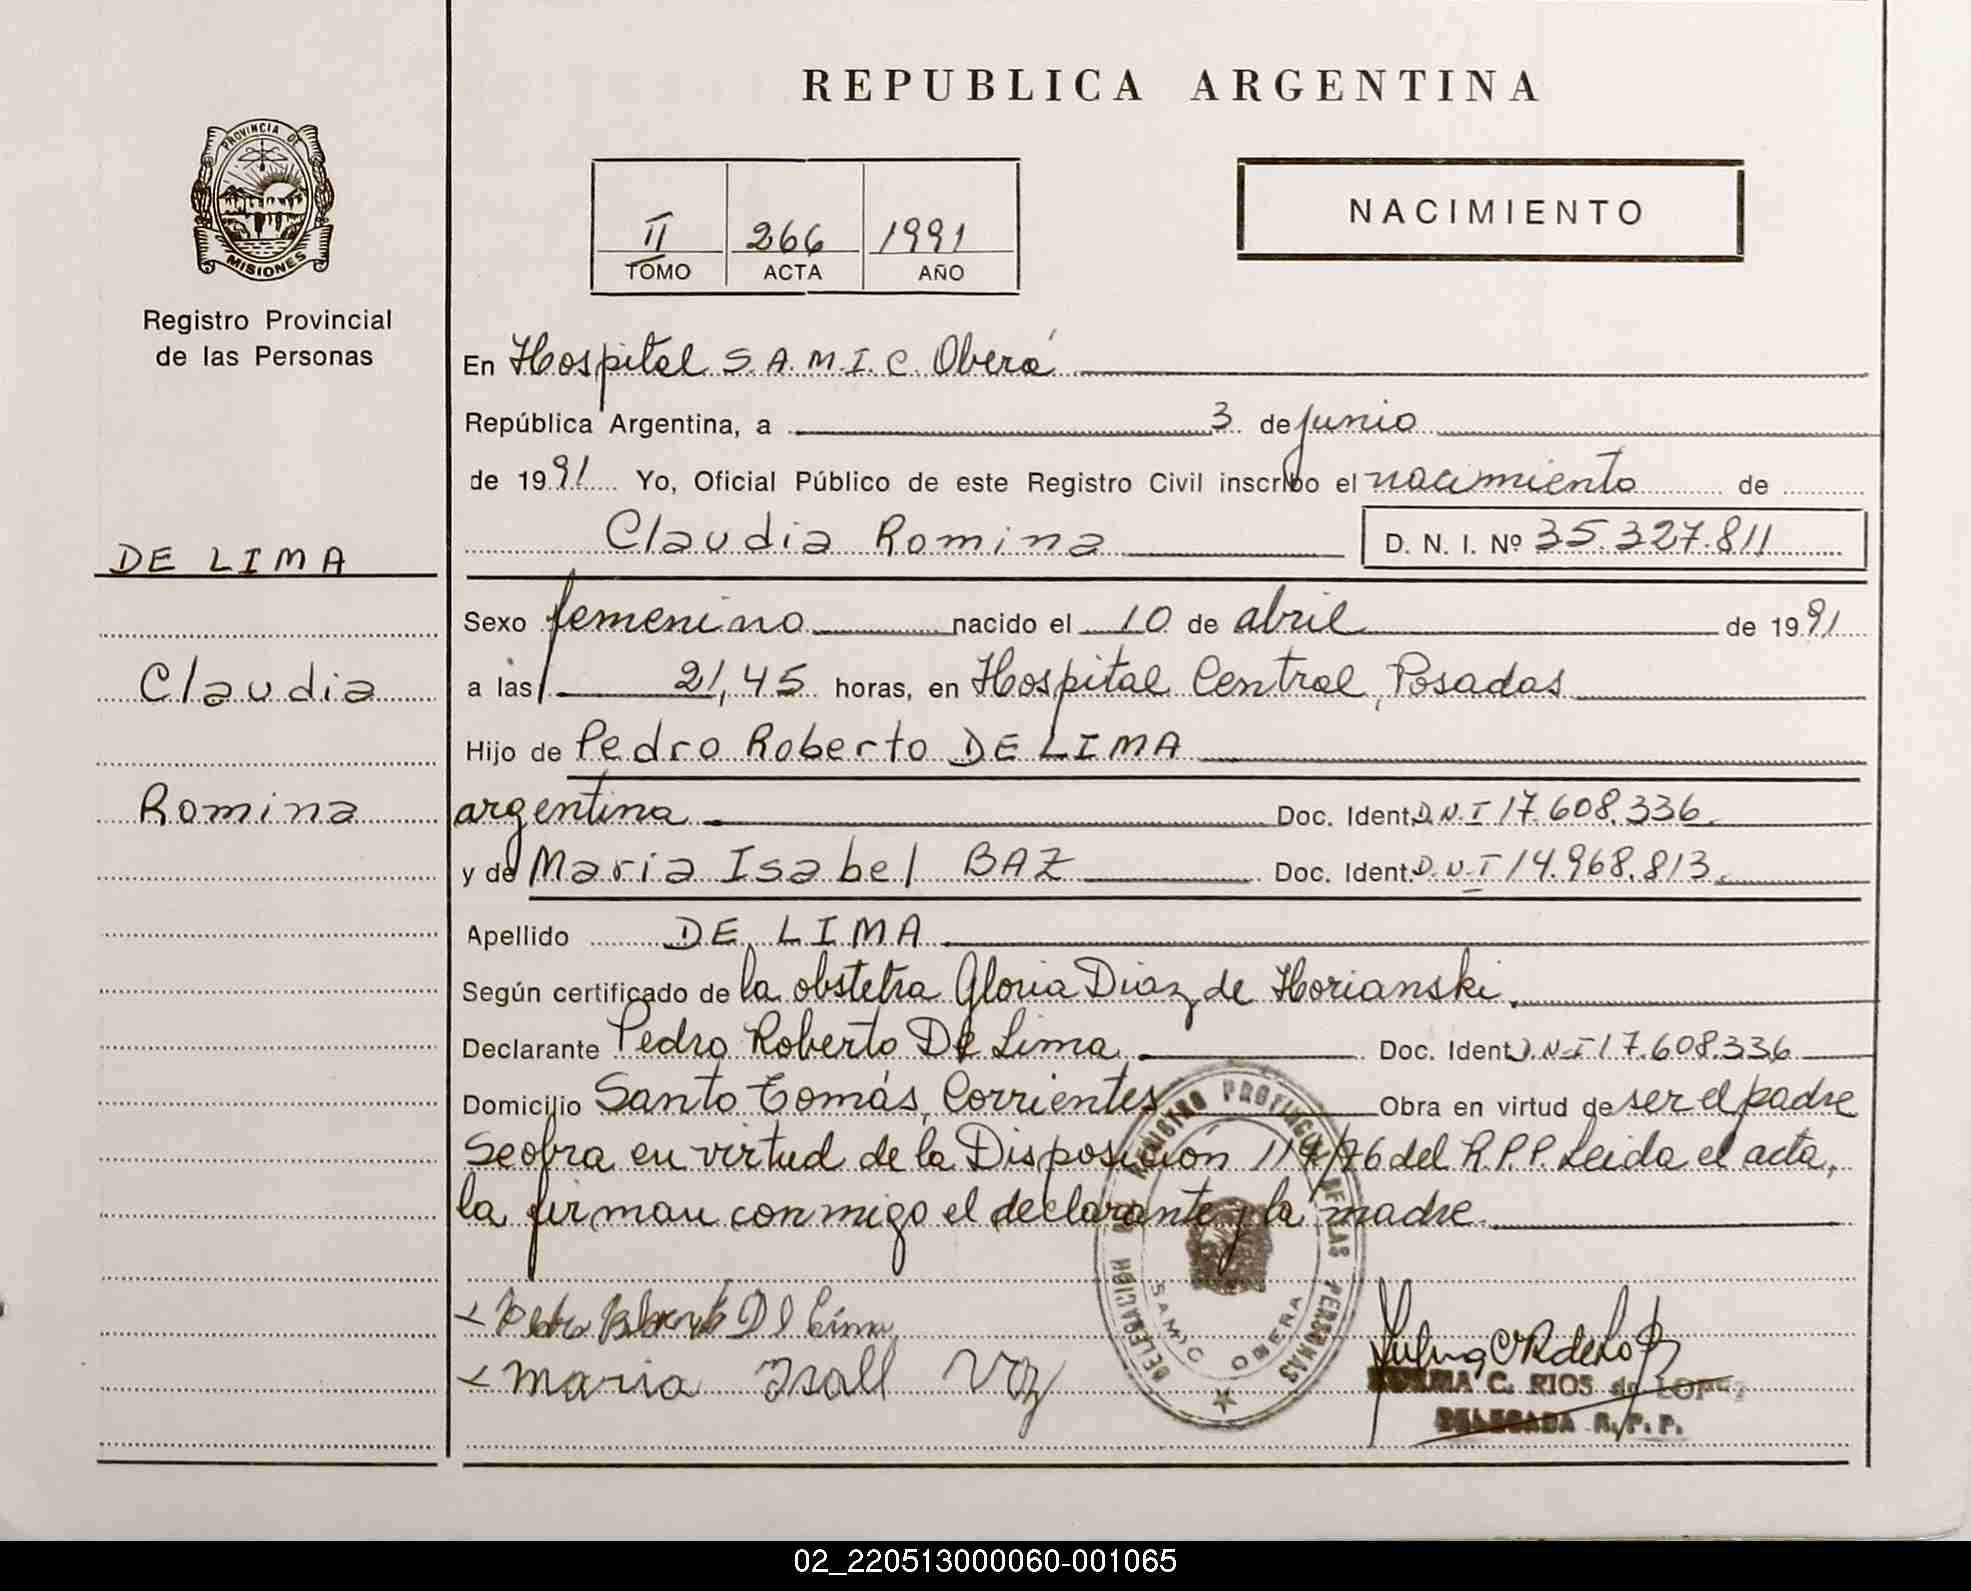 REPUBLICA ARGENTINA
PROVINCIA DE
MISIONES
Registro Provincial
de las Personas
II 266 1991
TOMO ACTA AÑO
NACIMIENTO
En Hospital S.A.M.I.C. Oberá
República Argentina, a 3 de junio
de 1991 Yo, Oficial Público de este Registro Civil inscribo el nacimiento de
Claudia Romina D. N. I. Nº 35.327.811
DE LIMA
Claudia
Romina
Sexo femenino nacido el 10 de abril de 1991
a las 21,45 horas, en Hospital Central, Posadas
Hijo de Pedro Roberto DE LIMA
argentina Doc. Ident. D.N.I 17.608.336.
y de Maria Isabel BAZ Doc. Ident. D.N.I 14.968.813.
Apellido DE LIMA
Según certificado de la obstetra Gloria Diaz de Horianski.
Declarante Pedro Roberto De Lima Doc. Ident D.N.I 17.608.336
Domicilio Santo Tomás, Corrientes Obra en virtud de ser el padre
Se obra en virtud de la Disposición /76 del R.P.P. Leida el acta,
la firman conmigo el declarante y la madre.
De Lima
Maria
DELEGACION REGISTRO PROVINCIAL DE LAS PERSONAS
SAMIC OBERA
NORMA C. RIOS de LOPEZ
DELEGADA R.P.P.
02_220513000060-001065